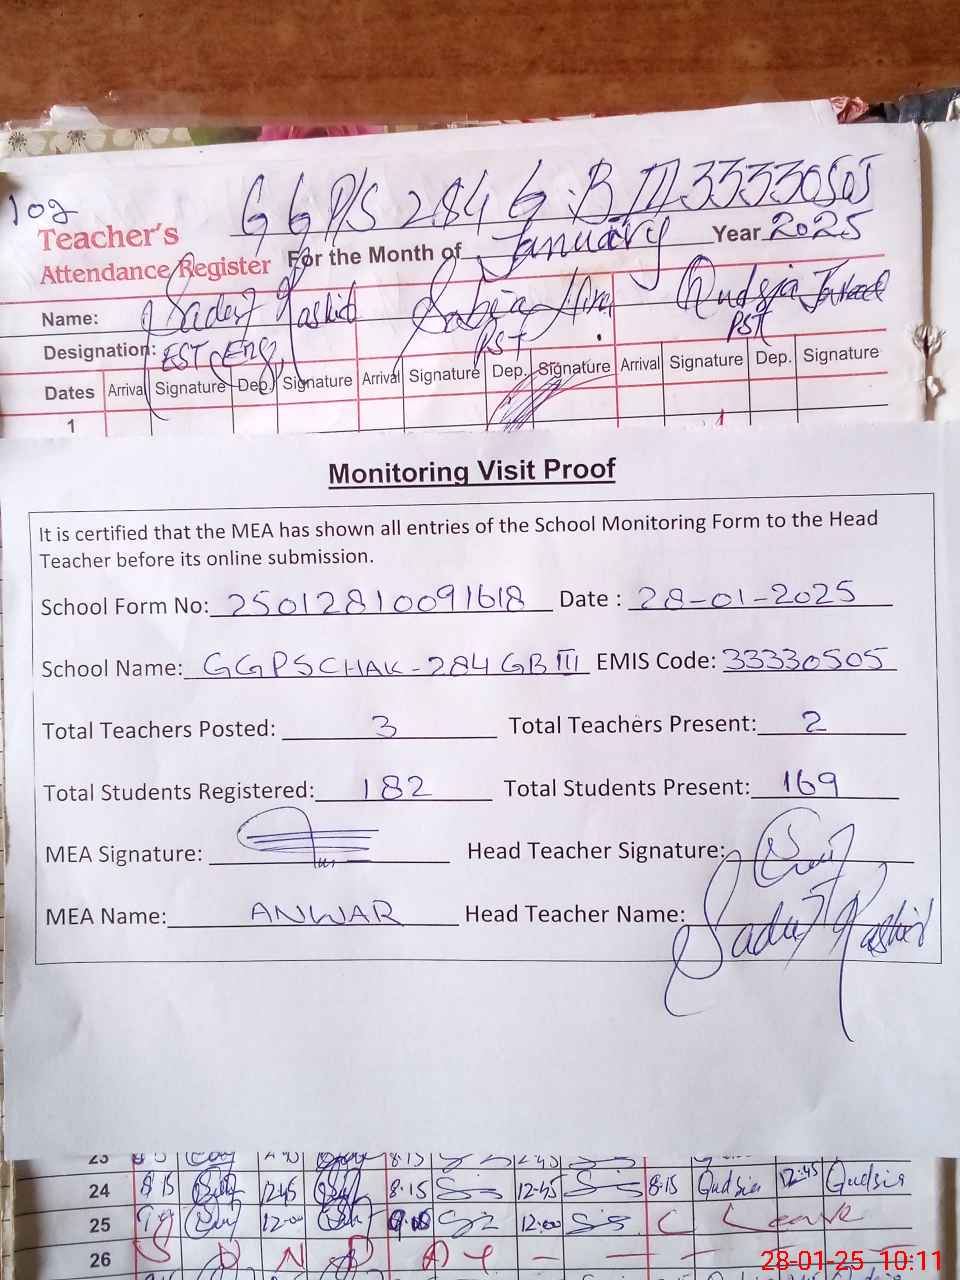 109
GGP/S 284 G.B III 33330505
Teacher's
Attendance Register For the Month of January Year 2025
Name: Sadaf Rashid Qudsia
Designation: EST (Eng) PST PST
Dates Arrival Signature Dep. Signature Arrival Signature Dep. Signature Arrival Signature Dep. Signature
1
Monitoring Visit Proof
It is certified that the MEA has shown all entries of the School Monitoring Form to the Head
Teacher before its online submission.
School Form No: 25012810091618 Date : 28-01-2025
School Name: GGPSCHAK-284 GB III EMIS Code: 33330505
Total Teachers Posted: 3 Total Teachers Present: 2
Total Students Registered: 182 Total Students Present: 169
MEA Signature: Head Teacher Signature:
MEA Name: ANWAR Head Teacher Name: Sadaf Rashid
23 8:15 12:45
24 8:15 12:45 8:15 12:45 8:15 Qudsia 12:45 Qudsia
25 12:00 12:00 C Leave
26 S U N D A Y
28-01-25 10:11